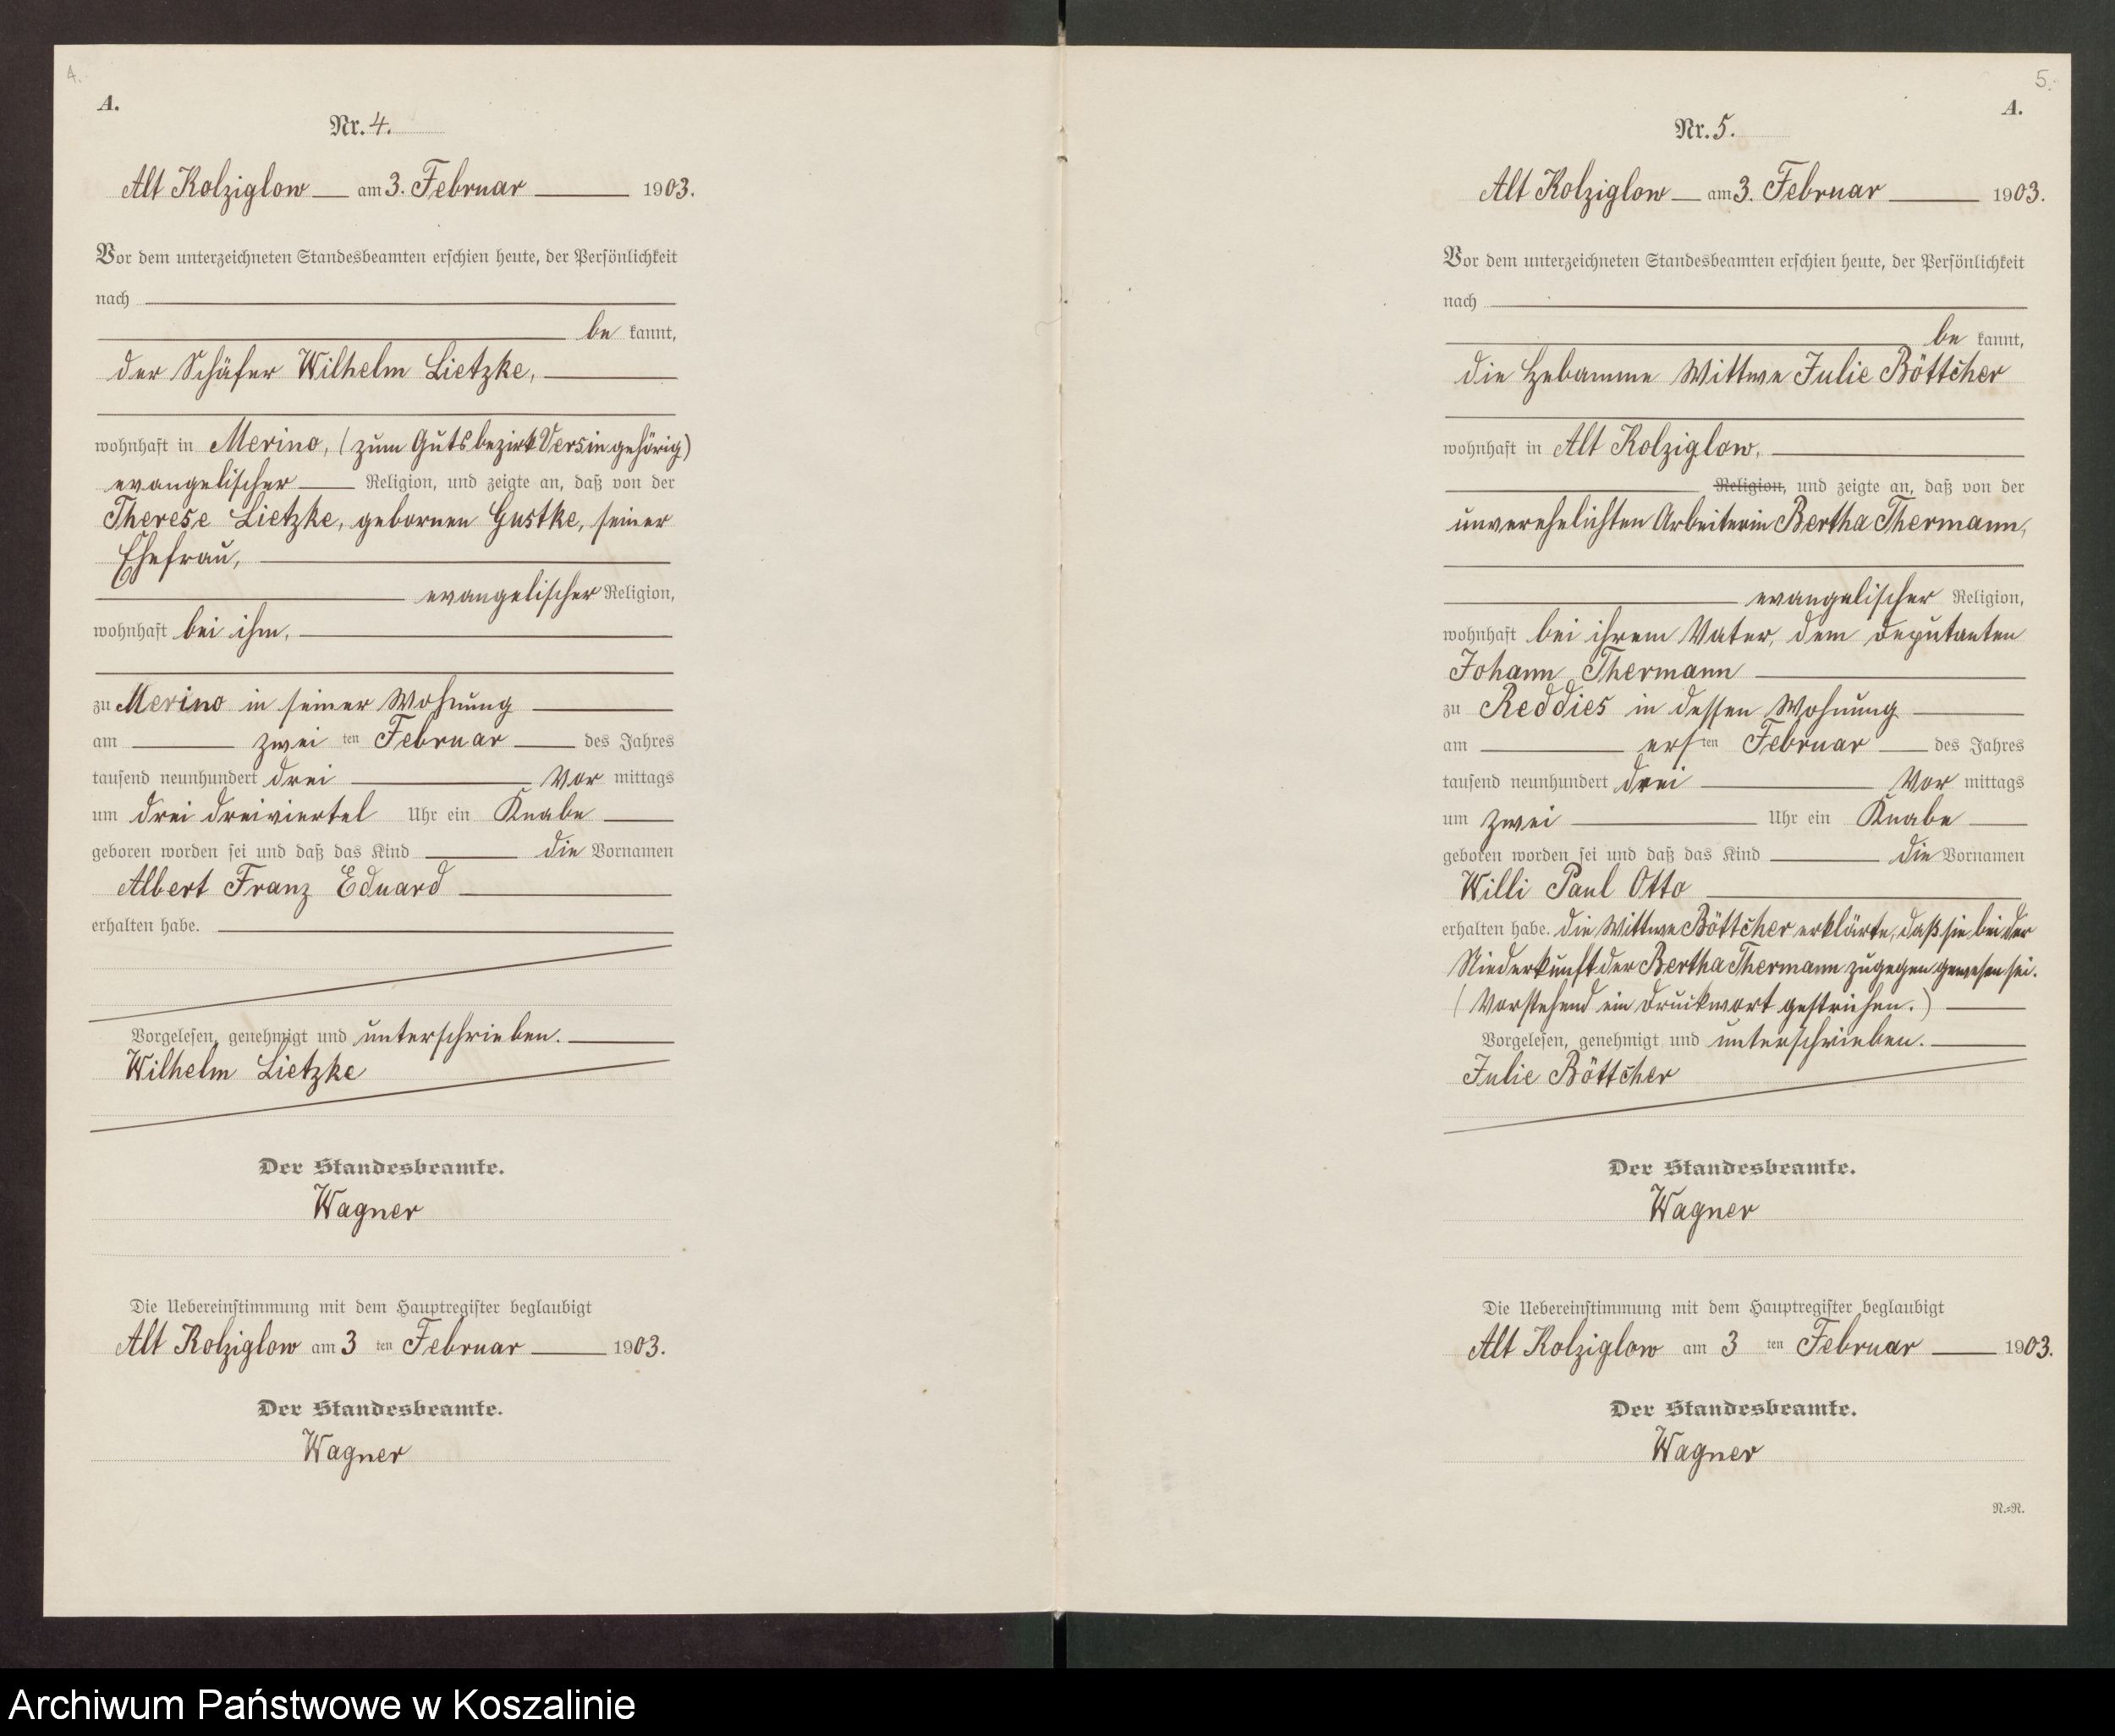 4.
A.
Nr. 4.
Alt Kolziglow am 3. Februar 1903.
Vor dem unterzeichneten Standesbeamten erschien heute, der Persönlichkeit
nach
be kannt,
der Schäfer Wilhelm Lietzke,
wohnhaft in Merino, (zum Gutsbezirk Versin gehörig)
evangelischer Religion, und zeigte an, daß von der
Therese Lietzke, gebornen Gustke, seiner
Ehefrau,
evangelischer Religion,
wohnhaft bei ihm,
zu Merino in seiner Wohnung
am zwei ten Februar des Jahres
tausend neunhundert drei Vor mittags
um drei dreiviertel Uhr ein Knabe
geboren worden sei und daß das Kind die Vornamen
Albert Franz Eduard
erhalten habe.
Vorgelesen, genehmigt und unterschrieben.
Wilhelm Lietzke
Der Standesbeamte.
Wagner
Die Uebereinstimmung mit dem Hauptregister beglaubigt
Alt Kolziglow am 3 ten Februar 1903.
Der Standesbeamte.
Wagner
5.
A.
Nr. 5.
Alt Kolziglow am 3. Februar 1903.
Vor dem unterzeichneten Standesbeamten erschien heute, der Persönlichkeit
nach
be kannt,
die Hebamme Wittwe Julie Böttcher
wohnhaft in Alt Kolziglow,
Religion, und zeigte an, daß von der
unverehelichten Arbeiterin Bertha Thermann,
evangelischer Religion,
wohnhaft bei ihrem Vater, dem Deputanten
Johann Thermann
zu Reddies in dessen Wohnung
am ers ten Februar des Jahres
tausend neunhundert drei Vor mittags
um zwei Uhr ein Knabe
geboren worden sei und daß das Kind die Vornamen
Willi Paul Otto
erhalten habe. Die Wittwe Böttcher erklärte, daß sie bei der
Niederkunft der Bertha Thermann zugegen gewesen sei.
(Vorstehend ein Druckwort gestrichen.)
Vorgelesen, genehmigt und unterschrieben.
Julie Böttcher
Der Standesbeamte.
Wagner
Die Uebereinstimmung mit dem Hauptregister beglaubigt
Alt Kolziglow am 3 ten Februar 1903.
Der Standesbeamte.
Wagner
N.=R.
Archiwum Państwowe w Koszalinie